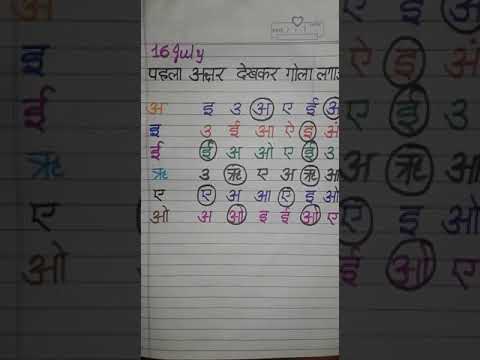 16 July
पहला अक्षर देखकर गोला लगाओ
अ इ उ अ ए ई अ
इ उ ई आ ऐ इ अं
ई ई अ ओ ए ई उ
ऋ उ ऋ ए अ ऋ आ
ए ए अ आ ए इ ओ
ओ अ ओ इ ई ओ ए